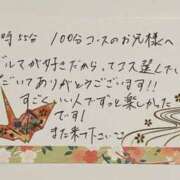 時55分 100分コースのお兄様へ
ルマが好きだからってコス選んで
だいてありがとうございます!!
すごくいい人でずっと楽しかった
です!
また来て下さいっ